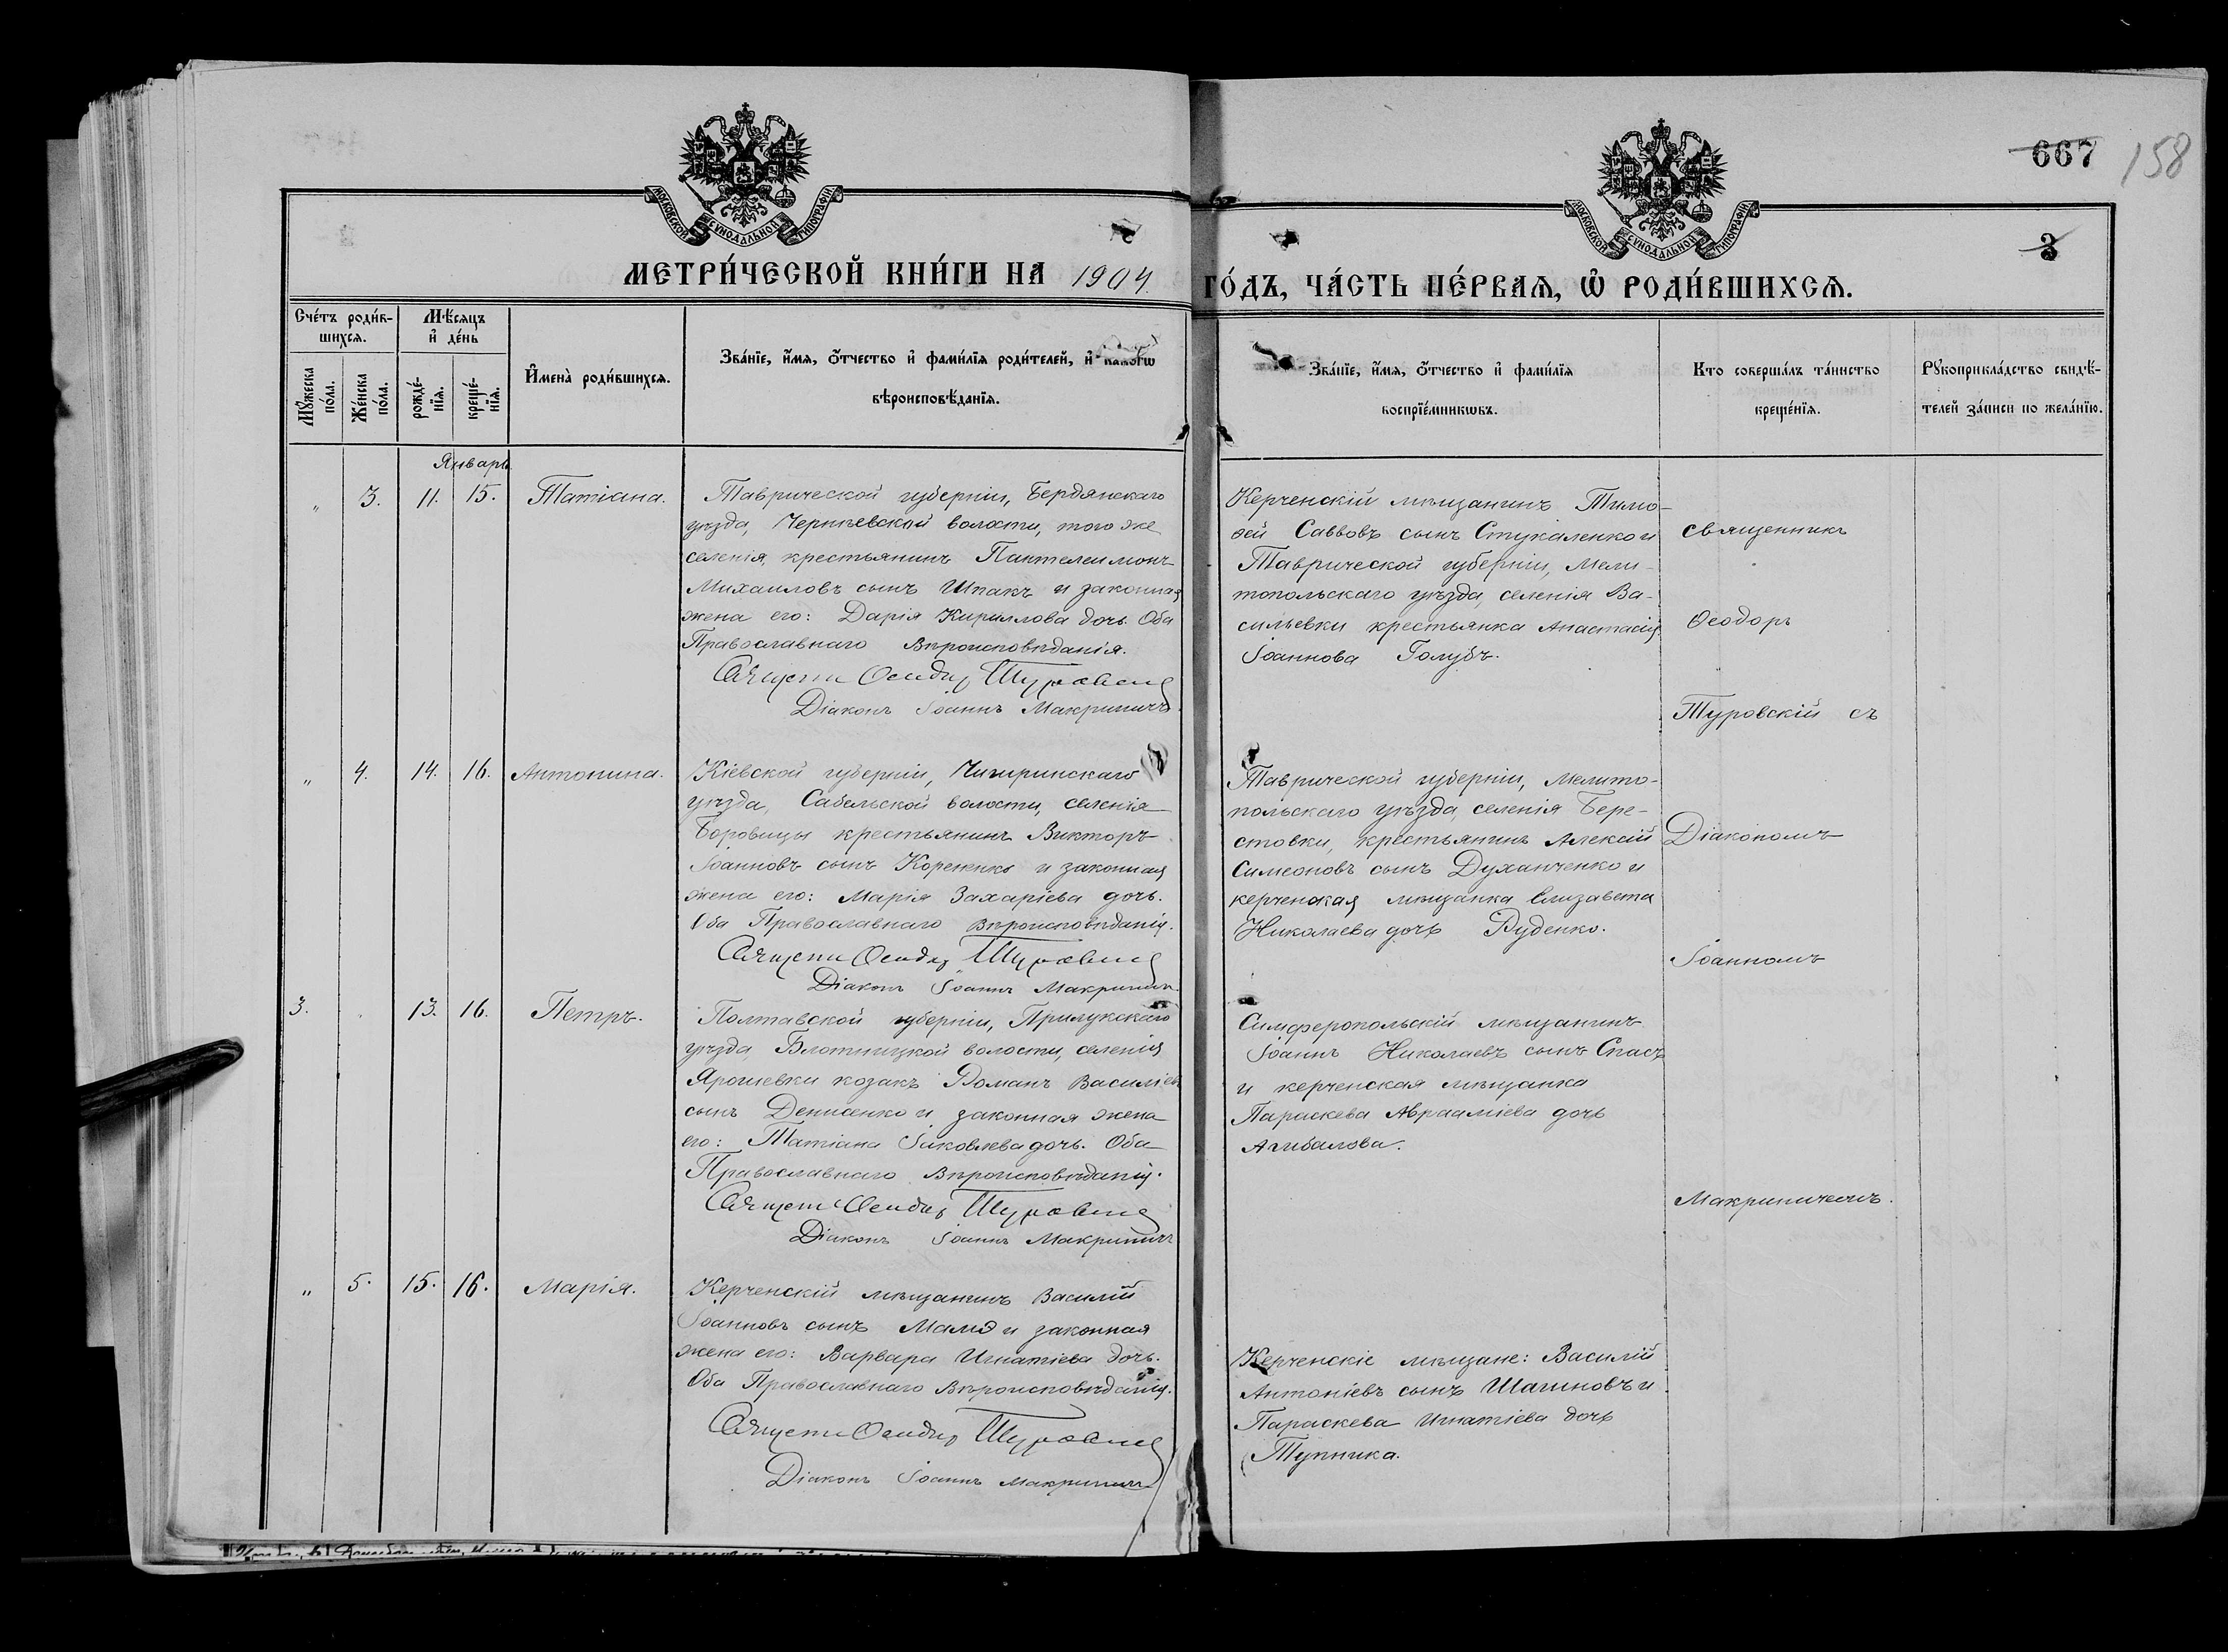 667 158
3
МОСКОВСКОЙ СУНОДАЛЬНОЙ ТИПОГРАФІИ
МОСКОВСКОЙ СУНОДАЛЬНОЙ ТИПОГРАФІИ
МЕТРИ́ЧЕСКОЙ КНИ́ГИ НА 1904. ГО́ДЪ, ЧА́СТЬ ПЕ́РВАЯ, Ѡ РОДИ́ВШИХСЯ.
Сче́тъ роди́в-
шихся.
Му́жеска по́ла.
Же́нска по́ла.
Мѣ́сяцъ и де́нь
рожде́-нїя.
креще́-нїя.
И҆мена̀ роди́вшихся.
Зва́нїе, и҆́мя, ѻ҆́тчество и҆ фами́лїя роди́телей, и҆ какогѡ
вѣроисповѣ́данїя.
Зва́нїе, и҆́мя, ѻ҆́тчество и҆ фами́лїя
воспрїе́мникѡвъ.
Кто соверша́лъ та́инство
креще́нїя.
Рꙋкоприкла́дство свидѣ́-
телей за́писи по жела́нїю.
Январь
" 3. 11. 15. Татіана.
Таврической губерніи, Бердянскаго
уѣзда, Черниевской волости, того же
селенія, крестьянинъ Пантелеимонъ
Михаиловъ сынъ Шпакъ и законная
жена его: Дарія Кириллова дочь. Оба
Православнаго Вѣроисповѣданія.
Священ Ѳеодоръ Туровскій
Діаконъ Іоаннъ Макриничъ
Керченскій мѣщанинъ Тимо-
ѳей Саввовъ сынъ Стукаленко и
Таврической губерніи, Мели-
топольскаго уѣзда, селенія Ва-
сильевки крестьянка Анастасія
Іоаннова Голубъ.
священникъ
Ѳеодоръ
Туровскій съ
" 4. 14. 16. Антонина.
Кіевской губерніи, Чигиринскаго
уѣзда, Сабельской волости, селенія
Боровицы крестьянинъ Викторъ
Іоанновъ сынъ Корененко и законная
жена его: Марія Захаріева дочь.
Оба Православнаго Вѣроисповѣданія.
Священ Ѳеодоръ Туровскій
Діаконъ Іоаннъ Макриничъ
Таврической губерніи, Мелито-
польскаго уѣзда, селенія Бере-
стовки, крестьянинъ Алексій
Симеоновъ сынъ Духанченко и
керченская мѣщанка Елизавета
Николаева дочь Руденко.
Діакономъ
Іоанномъ
3. 13. 16. Петръ.
Полтавской губерніи, Прилукскаго
уѣзда, Блотницкой волости, селенія
Ярошевки козакъ Романъ Василіев
сынъ Денисенко и законная жена
его: Татіана Іаковлева дочь. Оба
Православнаго Вѣроисповѣданія.
Священ Ѳеодоръ Туровскій
Діаконъ Іоаннъ Макриничъ
Симферопольскій мѣщанинъ
Іоаннъ Николаевъ сынъ Спасъ
и керченская мѣщанка
Параскева Авраамiева дочь
Агибалова.
Макриничемъ.
" 5. 15. 16. Марія.
Керченскій мѣщанинъ Василій
Іоанновъ сынъ и законная
жена его: Варвара Игнатіева дочь.
Оба Православнаго Вѣроисповѣданія.
Священ Ѳеодоръ Туровскій
Діаконъ Іоаннъ Макриничъ
Керченскіе мѣщане: Василій
Антоніевъ сынъ Шагиновъ и
Параскева Игнатіева дочь
Тупника.